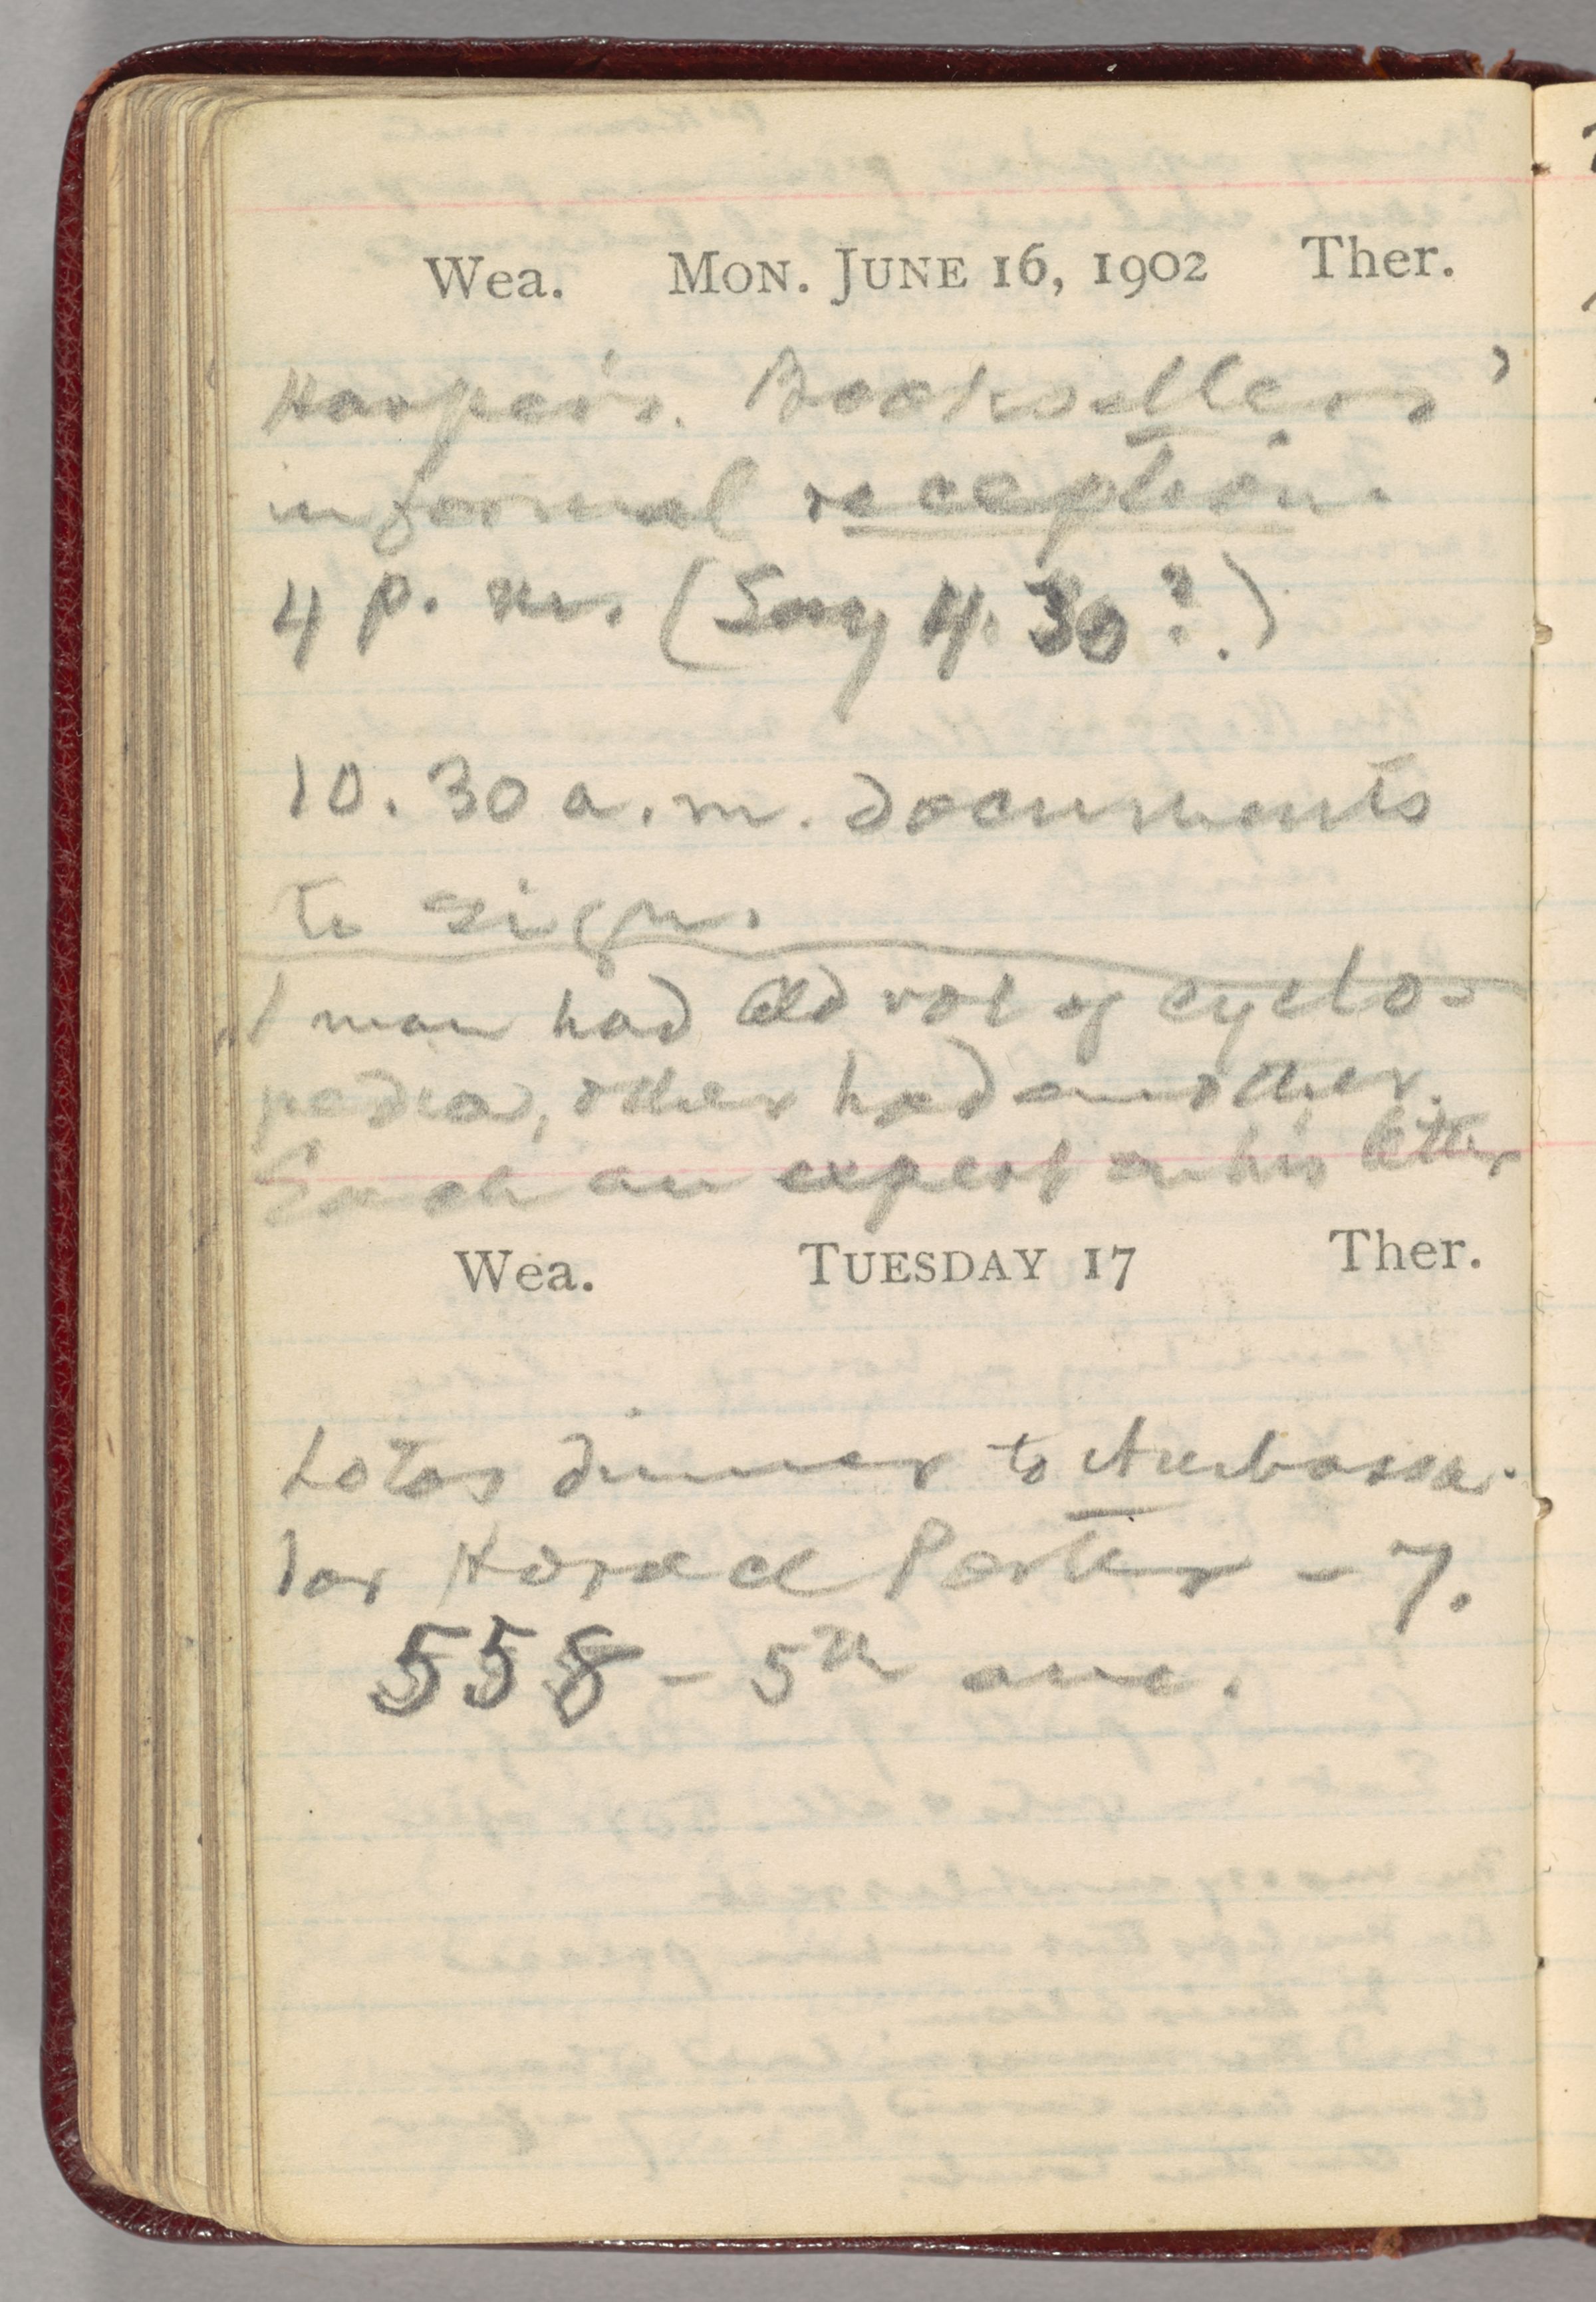 Wea. MON. JUNE 16, 1902 Ther.
Harper's. Booksellers'
informal reception.
4 p. m. (Say 4.30?.)
10.30 a.m. Documents
to sign.
1 man had old vol of cyclo-
pedia, other had another.
Each an expert on his letter
Wea. TUESDAY 17 Ther.
Lotos dinner to Ambassa-
dor Horace Porter – 7.
558 – 5th ave.